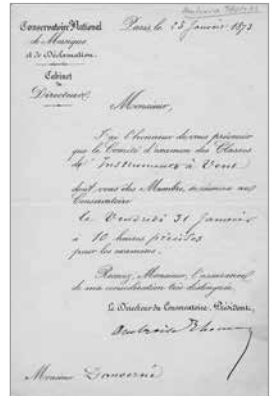 Conservatoire National
de Musique
et de Déclamation.
Cabinet
du
Directeur.
Paris, le 25 Janvier 1873
Monsieur,
J'ai l'honneur de vous prévenir
que le Comité d'examen des Classes
de Instruments à Vent
dont vous êtes Membre, se réunira au
Conservatoire
le Vendredi 31 Janvier
à 10 heures précises
pour les examens.
Recevez, Monsieur, l'assurance
de ma considération très distinguée.
Le Directeur du Conservatoire, Président,
Ambroise Thomas
Monsieur Dauverné